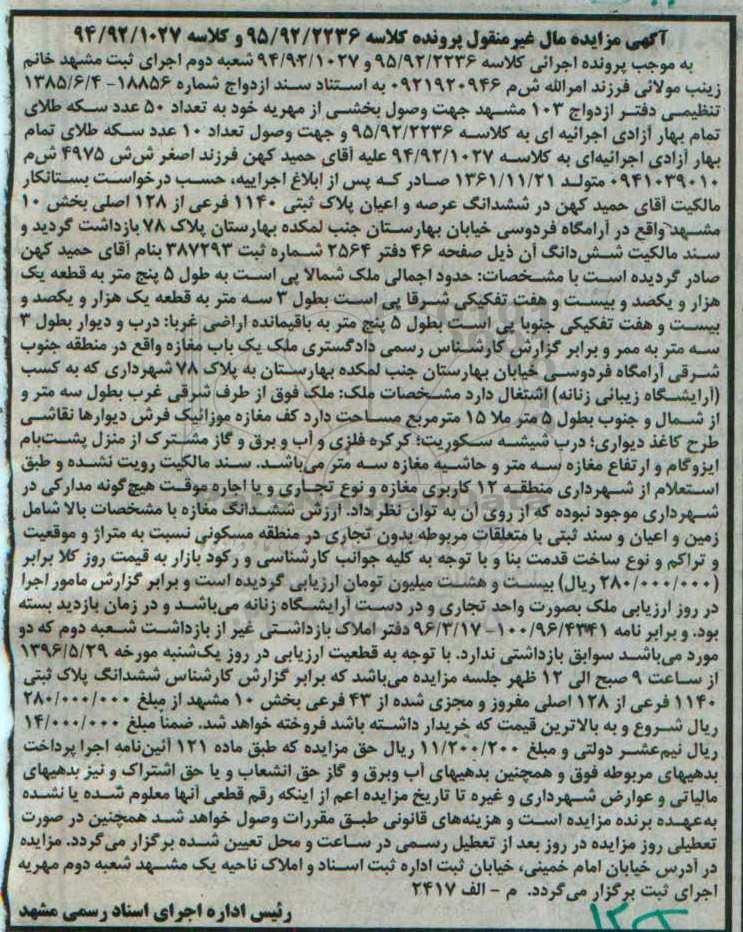 آگهی مزایده مال غیرمنقول پرونده کلاسه ۹۵/۹۲/۲۲۳۶ و کلاسه ۹۴/۹۲/۱۰۲۷
به موجب پرونده اجرائی کلاسه ۹۵/۹۲/۲۲۳۶ و ۹۴/۹۲/۱۰۲۷ شعبه دوم اجرای ثبت مشهد خانم
زینب مولائی فرزند امرالله ش‌م ۰۹۲۱۹۲۰۹۴۶ به استناد سند ازدواج شماره ۱۸۸۵۶- ۱۳۸۵/۶/۴
تنظیمی دفتر ازدواج ۱۰۳ مشهد جهت وصول بخشی از مهریه خود به تعداد ۵۰ عدد سکه طلای
تمام بهار آزادی اجرائیه ای به کلاسه ۹۵/۹۲/۲۲۳۶ و جهت وصول تعداد ۱۰ عدد سکه طلای تمام
بهار آزادی اجرائیه‌ای به کلاسه ۹۴/۹۲/۱۰۲۷ علیه آقای حمید کهن فرزند اصغر ش‌ش ۴۹۷۵ ش‌م
۰۹۴۱۰۳۹۰۱۰ متولد ۱۳۶۱/۱۱/۲۱ صادر که پس از ابلاغ اجراییه، حسب درخواست بستانکار
مالکیت آقای حمید کهن در ششدانگ عرصه و اعیان پلاک ثبتی ۱۱۴۰ فرعی از ۱۲۸ اصلی بخش ۱۰
مشهد واقع در آرامگاه فردوسی خیابان بهارستان جنب لمکده بهارستان پلاک ۷۸ بازداشت گردید و
سند مالکیت شش‌دانگ آن ذیل صفحه ۴۶ دفتر ۲۵۶۴ شماره ثبت ۳۸۷۲۹۳ بنام آقای حمید کهن
صادر گردیده است با مشخصات: حدود اجمالی ملک شمالا پی است به طول ۵ پنج متر به قطعه یک
هزار و یکصد و بیست و هفت تفکیکی شرقا پی است بطول ۳ سه متر به قطعه یک هزار و یکصد و
بیست و هفت تفکیکی جنوبا پی است بطول ۵ پنج متر به باقیمانده اراضی غربا: درب و دیوار بطول ۳
سه متر به ممر و برابر گزارش کارشناس رسمی دادگستری ملک یک باب مغازه واقع در منطقه جنوب
شرقی آرامگاه فردوسی خیابان بهارستان جنب لمکده بهارستان به پلاک ۷۸ شهرداری که به کسب
(آرایشگاه زیبائی زنانه) اشتغال دارد مشخصات ملک: ملک فوق از طرف شرقی غرب بطول سه متر و
از شمال و جنوب بطول ۵ متر ملا ۱۵ مترمربع مساحت دارد کف مغازه موزائیک فرش دیوارها نقاشی
طرح کاغذ دیواری؛ درب شیشه سکوریت؛ کرکره فلزی و آب و برق و گاز مشترک از منزل پشت‌بام
ایزوگام و ارتفاع مغازه سه متر و حاشیه مغازه سه متر می‌باشد. سند مالکیت رویت نشده و طبق
استعلام از شهرداری منطقه ۱۲ کاربری مغازه و نوع تجاری و یا اجاره موقت هیچ‌گونه مدارکی در
شهرداری موجود نبوده که از روی آن به توان نظر داد. ارزش ششدانگ مغازه با مشخصات بالا شامل
زمین و اعیان و سند ثبتی با متعلقات مربوطه بدون تجاری در منطقه مسکونی نسبت به متراژ و موقعیت
و تراکم و نوع ساخت قدمت بنا و با توجه به کلیه جوانب کارشناسی و رکود بازار به قیمت روز کلا برابر
(۲۸۰/۰۰۰/۰۰۰ ریال) بیست و هشت میلیون تومان ارزیابی گردیده است و برابر گزارش مامور اجرا
در روز ارزیابی ملک بصورت واحد تجاری و در دست آرایشگاه زنانه می‌باشد و در زمان بازدید بسته
بود. و برابر نامه ۱۰۰/۹۶/۴۳۴۱- ۹۶/۳/۱۷ دفتر املاک بازداشتی غیر از بازداشت شعبه دوم که دو
مورد می‌باشد سوابق بازداشتی ندارد. با توجه به قطعیت ارزیابی در روز یک‌شنبه مورخه ۱۳۹۶/۵/۲۹
از ساعت ۹ صبح الی ۱۲ ظهر جلسه مزایده می‌باشد که برابر گزارش کارشناس ششدانگ پلاک ثبتی
۱۱۴۰ فرعی از ۱۲۸ اصلی مفروز و مجزی شده از ۴۳ فرعی بخش ۱۰ مشهد از مبلغ ۲۸۰/۰۰۰/۰۰۰
ریال شروع و به بالاترین قیمت که خریدار داشته باشد فروخته خواهد شد. ضمناً مبلغ ۱۴/۰۰۰/۰۰۰
ریال نیم‌عشر دولتی و مبلغ ۱۱/۲۰۰/۲۰۰ ریال حق مزایده که طبق ماده ۱۲۱ آئین‌نامه اجرا پرداخت
بدهیهای مربوطه فوق و همچنین بدهیهای آب وبرق و گاز حق انشعاب و یا حق اشتراک و نیز بدهیهای
مالیاتی و عوارض شهرداری و غیره تا تاریخ مزایده اعم از اینکه رقم قطعی آنها معلوم شده یا نشده
به‌عهده برنده مزایده است و هزینه‌های قانونی طبق مقررات وصول خواهد شد همچنین در صورت
تعطیلی روز مزایده در روز بعد از تعطیل رسمی در ساعت و محل تعیین شده برگزار می‌گردد. مزایده
در آدرس خیابان امام خمینی، خیابان ثبت اداره ثبت اسناد و املاک ناحیه یک مشهد شعبه دوم مهریه
اجرای ثبت برگزار می‌گردد. م - الف ۲۴۱۷
رئیس اداره اجرای اسناد رسمی مشهد